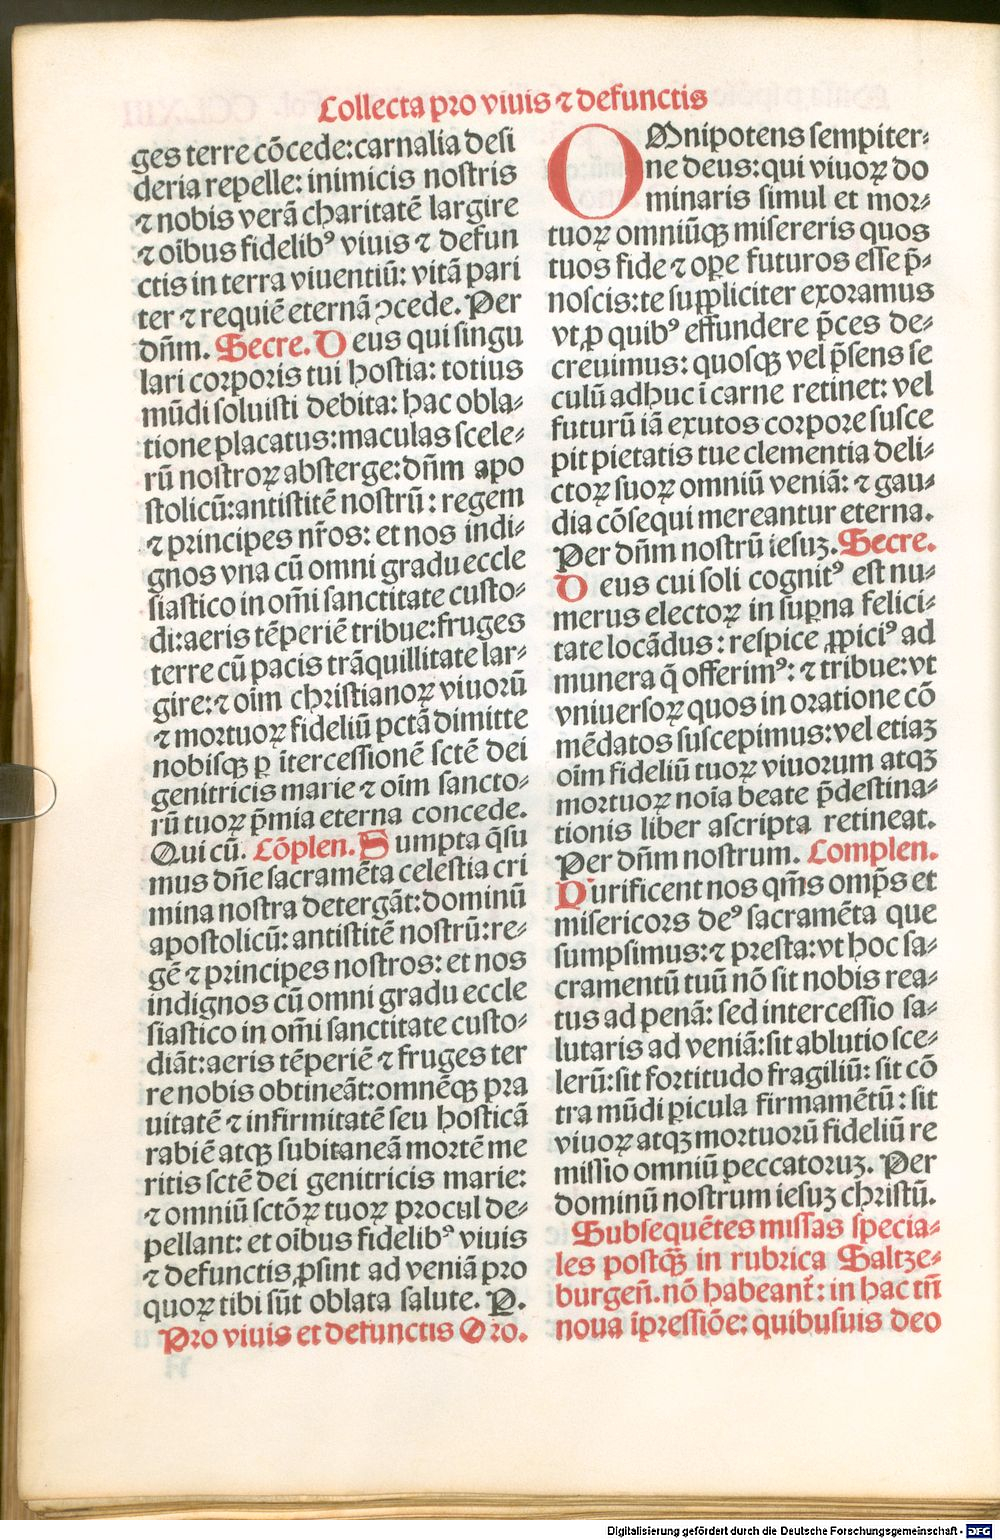 Collecta pro viuis ⁊ defunctis
ges terre cõcede: carnalia desi
deria repelle: inimicis nostris
⁊ nobis verã charitatẽ largire
⁊ oĩbus fidelibꝰ viuis ⁊ defun
ctis in terra viuentiũ: vitã pari
ter ⁊ requiẽ eternã ꝯcede. Per
dñm. Secre. Deus qui singu
lari corporis tui hostia: totius
mũdi soluisti debita: hac obla⸗
tione placatus: maculas scele⸗
rũ nostroꝝ absterge: dñm apo
stolicũ: antistitẽ nostrũ: regem
⁊ principes nr̃os: et nos indi⸗
gnos vna cũ omni gradu eccle
siastico in om̃i sanctitate custo⸗
di: aeris tẽperiẽ tribue: fruges
terre cũ pacis trãquillitate lar⸗
gire: ⁊ oĩm christianoꝝ viuorũ
⁊ mortuoꝝ fideliũ pctã dimitte
nobisqꝫ ꝑ ĩtercessionẽ sctẽ dei
genitricis marie ⁊ oĩm sancto⸗
rũ tuoꝝ p̃mia eterna concede.
Qui cũ. Cõplen. Sumpta q̃su
mus dñe sacramẽta celestia cri
mina nostra detergãt: dominũ
apostolicũ: antistitẽ nostrũ: re⸗
gẽ ⁊ principes nostros: et nos
indignos cũ omni gradu eccle
siastico in om̃i sanctitate custo⸗
diãt: aeris tẽperiẽ ⁊ fruges ter
re nobis obtineãt: omnẽqꝫ pra
uitatẽ ⁊ infirmitatẽ seu hosticã
rabiẽ atqꝫ subitaneã mortẽ me
ritis sctẽ dei genitricis marie:
⁊ omniũ sctõꝝ tuoꝝ procul de⸗
pellant: et oĩbus fidelibꝰ viuis
⁊ defunctis ꝓsint ad veniã pro
quoꝝ tibi sũt oblata salute. P.
Pro viuis et defunctis Oro.
OMnipotens sempiter⸗
ne deus: qui viuoꝝ do
minaris simul et mor⸗
tuoꝝ omniũqꝫ misereris quos
tuos fide ⁊ oꝑe futuros esse p̃⸗
noscis: te suppliciter exoramus
vt ꝓ quibꝰ effundere p̃ces de⸗
creuimus: quosqꝫ vel p̃sens se
culũ adhuc ĩ carne retinet: vel
futurũ iã exutos corpore susce
pit pietatis tue clementia deli⸗
ctoꝝ suoꝝ omniũ veniã: ⁊ gau⸗
dia cõsequi mereantur eterna.
Per dñm nostrũ iesuꝫ. Secre.
Deus cui soli cognitꝰ est nu⸗
merus electoꝝ in suꝑna felici⸗
tate locãdus: respice ꝓpiciꝰ ad
munera q̃ offerimꝰ: ⁊ tribue: vt
vniuersoꝝ quos in oratione cõ
mẽdatos suscepimus: vel etiaꝫ
oĩm fideliũ tuoꝝ viuorum atqꝫ
mortuoꝝ noĩa beate p̃destina⸗
tionis liber ascripta retineat.
Per dñm nostrum. Complen.
Purificent nos qm̃s omp̃s et
misericors deꝰ sacramẽta que
sumpsimus: ⁊ presta: vt hoc sa⸗
cramentũ tuũ nõ sit nobis rea⸗
tus ad penã: sed intercessio sa⸗
lutaris ad veniã: sit ablutio sce⸗
lerũ: sit fortitudo fragiliũ: sit cõ
tra mũdi ꝑicula firmamẽtũ: sit
viuoꝝ atqꝫ mortuorũ fideliũ re
missio omniũ peccatoruꝫ. Per
dominũ nostrum iesuꝫ christũ.
Subsequẽtes missas specia⸗
les postqꝫ̃ in rubrica Saltze⸗
burgeñ. nõ habeant̃: in hac tñ
noua ĩpressiõe: quibusuis deo
Digitalisierung gefördert durch die Deutsche Forschungsgemeinschaft - DFG